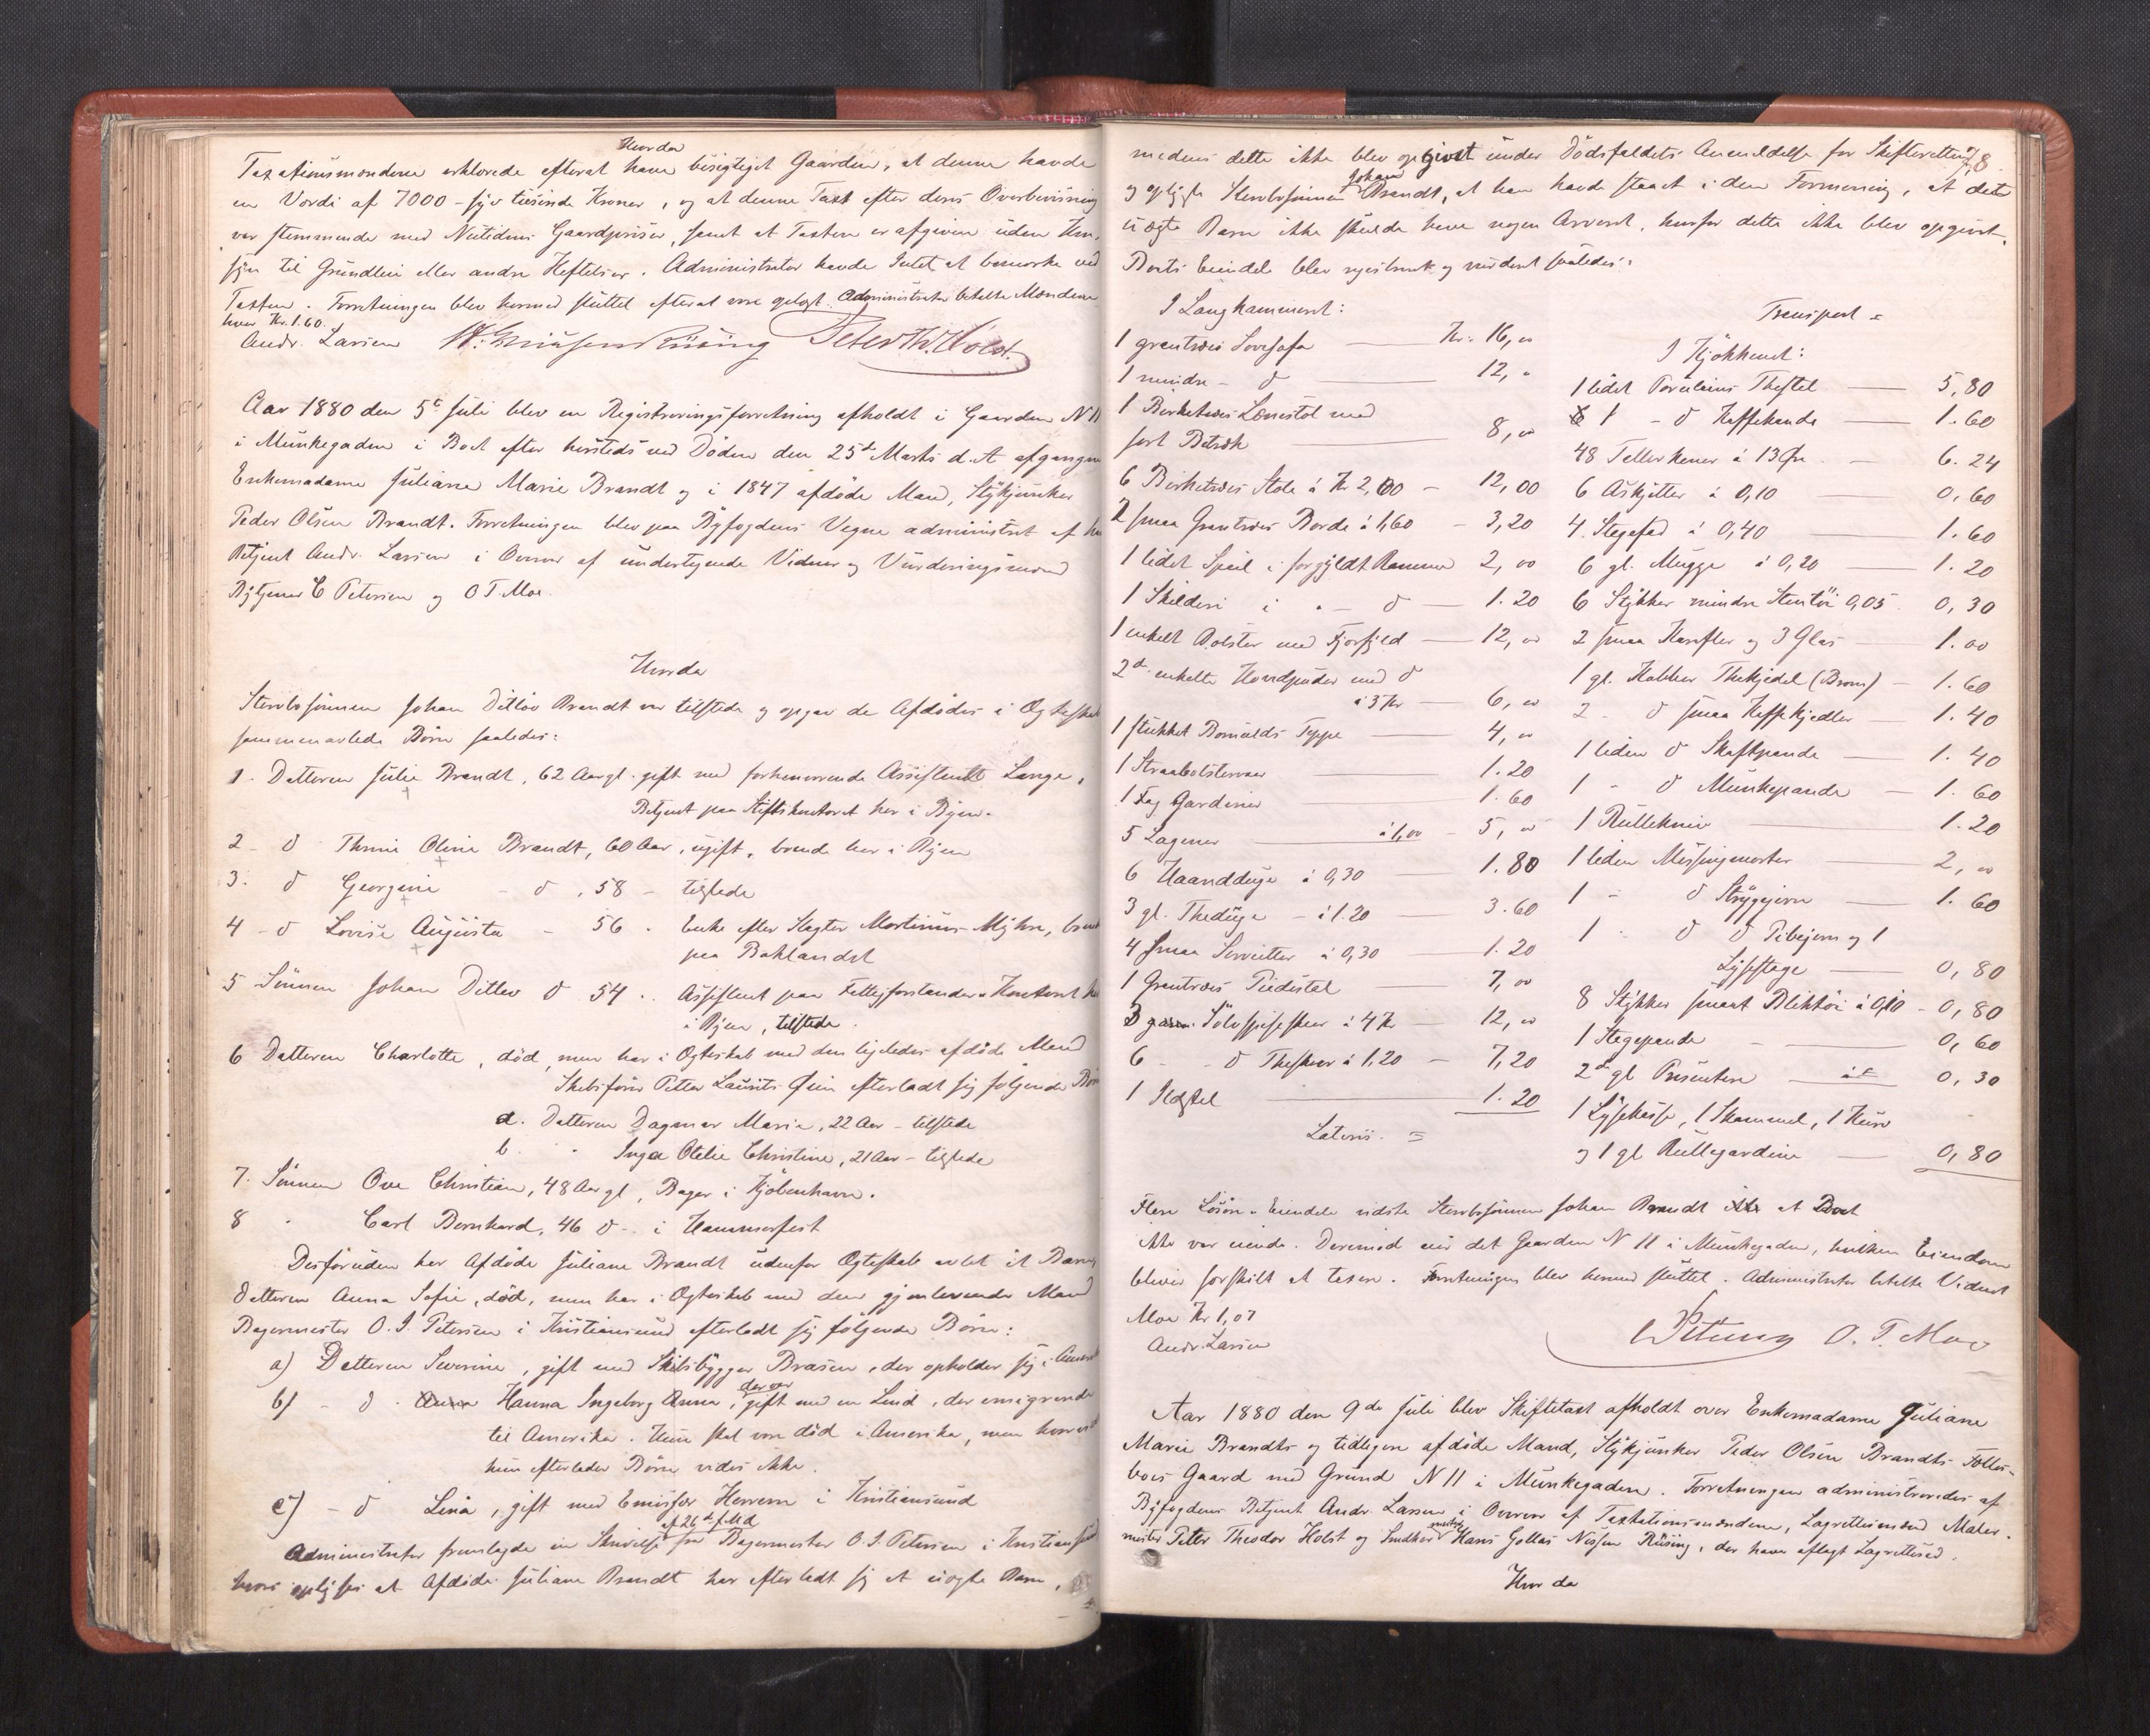 Hvorda
Taxationsmændene erklærede efterat have besigtiget Gaarden, at denne havde
en Værdi af 7000 - syv tusinde Kroner, og at denne Taxt efter deres Overbevisning
var stemmende med Nutidens Gaardpriser, samt at Taxten er afgiven uden Hen-
syn til Grundleie eller andre Heftelser. Administrator havde Intet at bemærke ved
Taxten. Forretningen blev hermed sluttet efterat være oplæst. Administrator betalte Mændene
hver Kr. 1.60.
Andr. Larsen H. G. Nissen Rüsing Peter Th. Holst.
Aar 1880 den 5te Juli blev en Registreringsforretning afholdt i Gaarden N 11
i Munkegaden i Boet efter hersteds ved Døden den 25de Marts d. A. afgangne
Enkemadame Juliane Marie Brandt og i 1847 afdøde Mand, Stykjunker
Peder Olsen Brandt. Forretningen blev paa Byfogdens Vegne administret af hs
Betjent Andr. Larsen i Overvær af undertegnede Vidner og Vurderingsmænd
Bytjener C Petersen og O T. Moe.
Hvorda
Stervbosønnen Johan Ditlev Brandt var tilstede og opgav de Afdødes i Ægteskab
sammenavlede Børn saaledes:
1. Datteren Julie Brandt, 62 Aar gl. gift med forhenværende Assistent Lange,
Betjent paa Stiftskontoret her i Byen.
2 - d Thrine Oline Brandt, 60 Aar, ugift, boende her i Byen
3. d Georgine - d, 58 - tilstede
4 - d Lovise Augusta - 56 - Enke efter Slagter Martinus Myhre, boende
paa Baklandet
5 Sønnen Johan Ditlev d 54 .. Assistent paa Fattigforstander-Kontoret her
i Byen, tilstede.
6 Datteren Charlotte, død, men har i Ægteskab med den ligeledes afdøde Mand
Skibsfører Petter Laurits Juin efterladt sig følgende Børn
a. Datteren Dagmar Marie, 22 Aar - tilstede
b. " Inga Otelie Christine, 21 Aar - tilstede
7. Sønnen Ove Christian, 48 Aar gl, Bager i Kjøbenhavn.
8 " Carl Bernhard, 46 d - i Hammerfest
Desforuden har Afdøde Juliane Brandt udenfor Ægteskab avlet et Barn,
Datteren Anna Sofie, død, men har i Ægteskab med den gjenlevende Mand
Bagermester O. J. Petersen i Kristiansund efterladt sig følgende Børn:
a) Datteren Severine, gift med Skibsbygger Brasen, der opholder sig i Amerika
b) - d . Hanna Ingeborg Anna, der var gift med en Lind, der emigrerede
til Amerika. Hun skal være død i Amerika, men hvorvidt
hun efterlader Børn vides ikke.
c) - d Lina, gift med Emissær Herrem i Kristiansund
Administrator fremlagde en Skrivelse af 26de f. Md fra Bagermester O. J. Petersen i Kristiansund
hvori oplyses at Afdøde Juliane Brandt har efterladt sig et uægte Barn,
medens dette ikke blev opgivet under Dødsfaldets Anmeldelse for Skifteretten, 78.
og oplyste Stervbosønnen Johan Brandt, at han havde staaet i den Formening, at dette
uægte Barn ikke skulde have nogen Arveret, hvorfor dette ikke blev opgivet.
Boets Eiendele blev registreret og vurderet saaledes:
I Langkammeret:
1 grantræes Sovesofa — Kr. 16,00
1 mindre - d — 12, "
1 Birketræes Lænestol med
sort Betræk — 8,00
6 Birketræes Stole á Kr 2,00 - 12,00
2 smaa Grantræes Borde á 1,60 - 3,20
1 lidet Speil i forgyldt Ramme 2,00
1 Skilderi i " - d — 1.20
1 enkelt Bolster med Fjærfyld — 12,00
2de enkelte Hovedpuder med d
á 3 Kr — 6,00
1 stukket Bomulds Teppe — 4,00
1 Straabolstervaar 1.20
1 Fag Gardiner 1.60
5 Lagener — á 1,00 - 5,00
6 Haandduge á 0,30 — 1.80
3 gl. Theduge - á 1.20 — 3.60
4 smaa Servietter á 0,30 — 1.20
1 Grantræes Piedestal — 7,00
3 Sølvspiseskeer á 4 Kr — 12,00
6 - d Theskeer á 1,20 - 7,20
1 Ildstel — 1.20
Lateris. =
Transport =
I Kjøkkenet:
1 lidet Porcelains Thestel — 5,80
1 - d Kaffekande — 1.60
48 Tellerkener á 13 Øre - 6.24
6 Askjetter á 0,10 — 0,60
4. Stegefad á 0,40 — 1.60
6 gl. Mugge á 0,20 — 1.20
6 Stykker mindre Stentøi 0,05 0,30
2 smaa Karafler og 3 Glas — 1.00
1 gl. Kobber Thekjedel (Brons) - 1.60
2 - d smaa Kaffekjedler — 1.40
1 liden d Skaftpande — 1.40
1 - d Munkepande — 1.60
1 Rullekniv — 1.20
1 liden Messingmorter — 2,00
1 - d Strygejern — 1.60
1 " d d Pibejern og 1
Lysestage — 0,80
8 Stykker smaat Bliktøi á 0,10 - 0,80
1 Stegepande — 0,60
2de gl Presentere — 0,30
1 Lysekasse, 1 Skammel, 1 Kurv
og 1 gl Rullegardine — 0,80
Flere Løsøre-Eiendele vidste Stervbosønnen Johan Brandt ikke at Boet
ikke var eiende. Derimod eier det Gaarden N 11 i Munkegaden, hvilken Eiendom
bliver særskilt at taxere. Forretningen blev hermed sluttet. Administrator betalte Vidnet
Moe Kr 1,07
Andr. Larsen
C Petersen O. T. Moe
Aar 1880 den 9de Juli blev Skiftetaxt afholdt over Enkemadame Juliane
Marie Brandts og tidligere afdøde Mand, Stykjunker Peder Olsen Brandts Fælles-
boes Gaard med Grund N 11 i Munkegaden. Forretningen administreredes af
Byfogdens Betjent Andr. Larsen i Overvær af Taxtationsmændene, Lagrettesmænd Maler-
mester Petter Theodor Holst og Snedkermester Hans Gollas Nissen Rüsing, der have aflagt Lagretteseed.
Hvor da